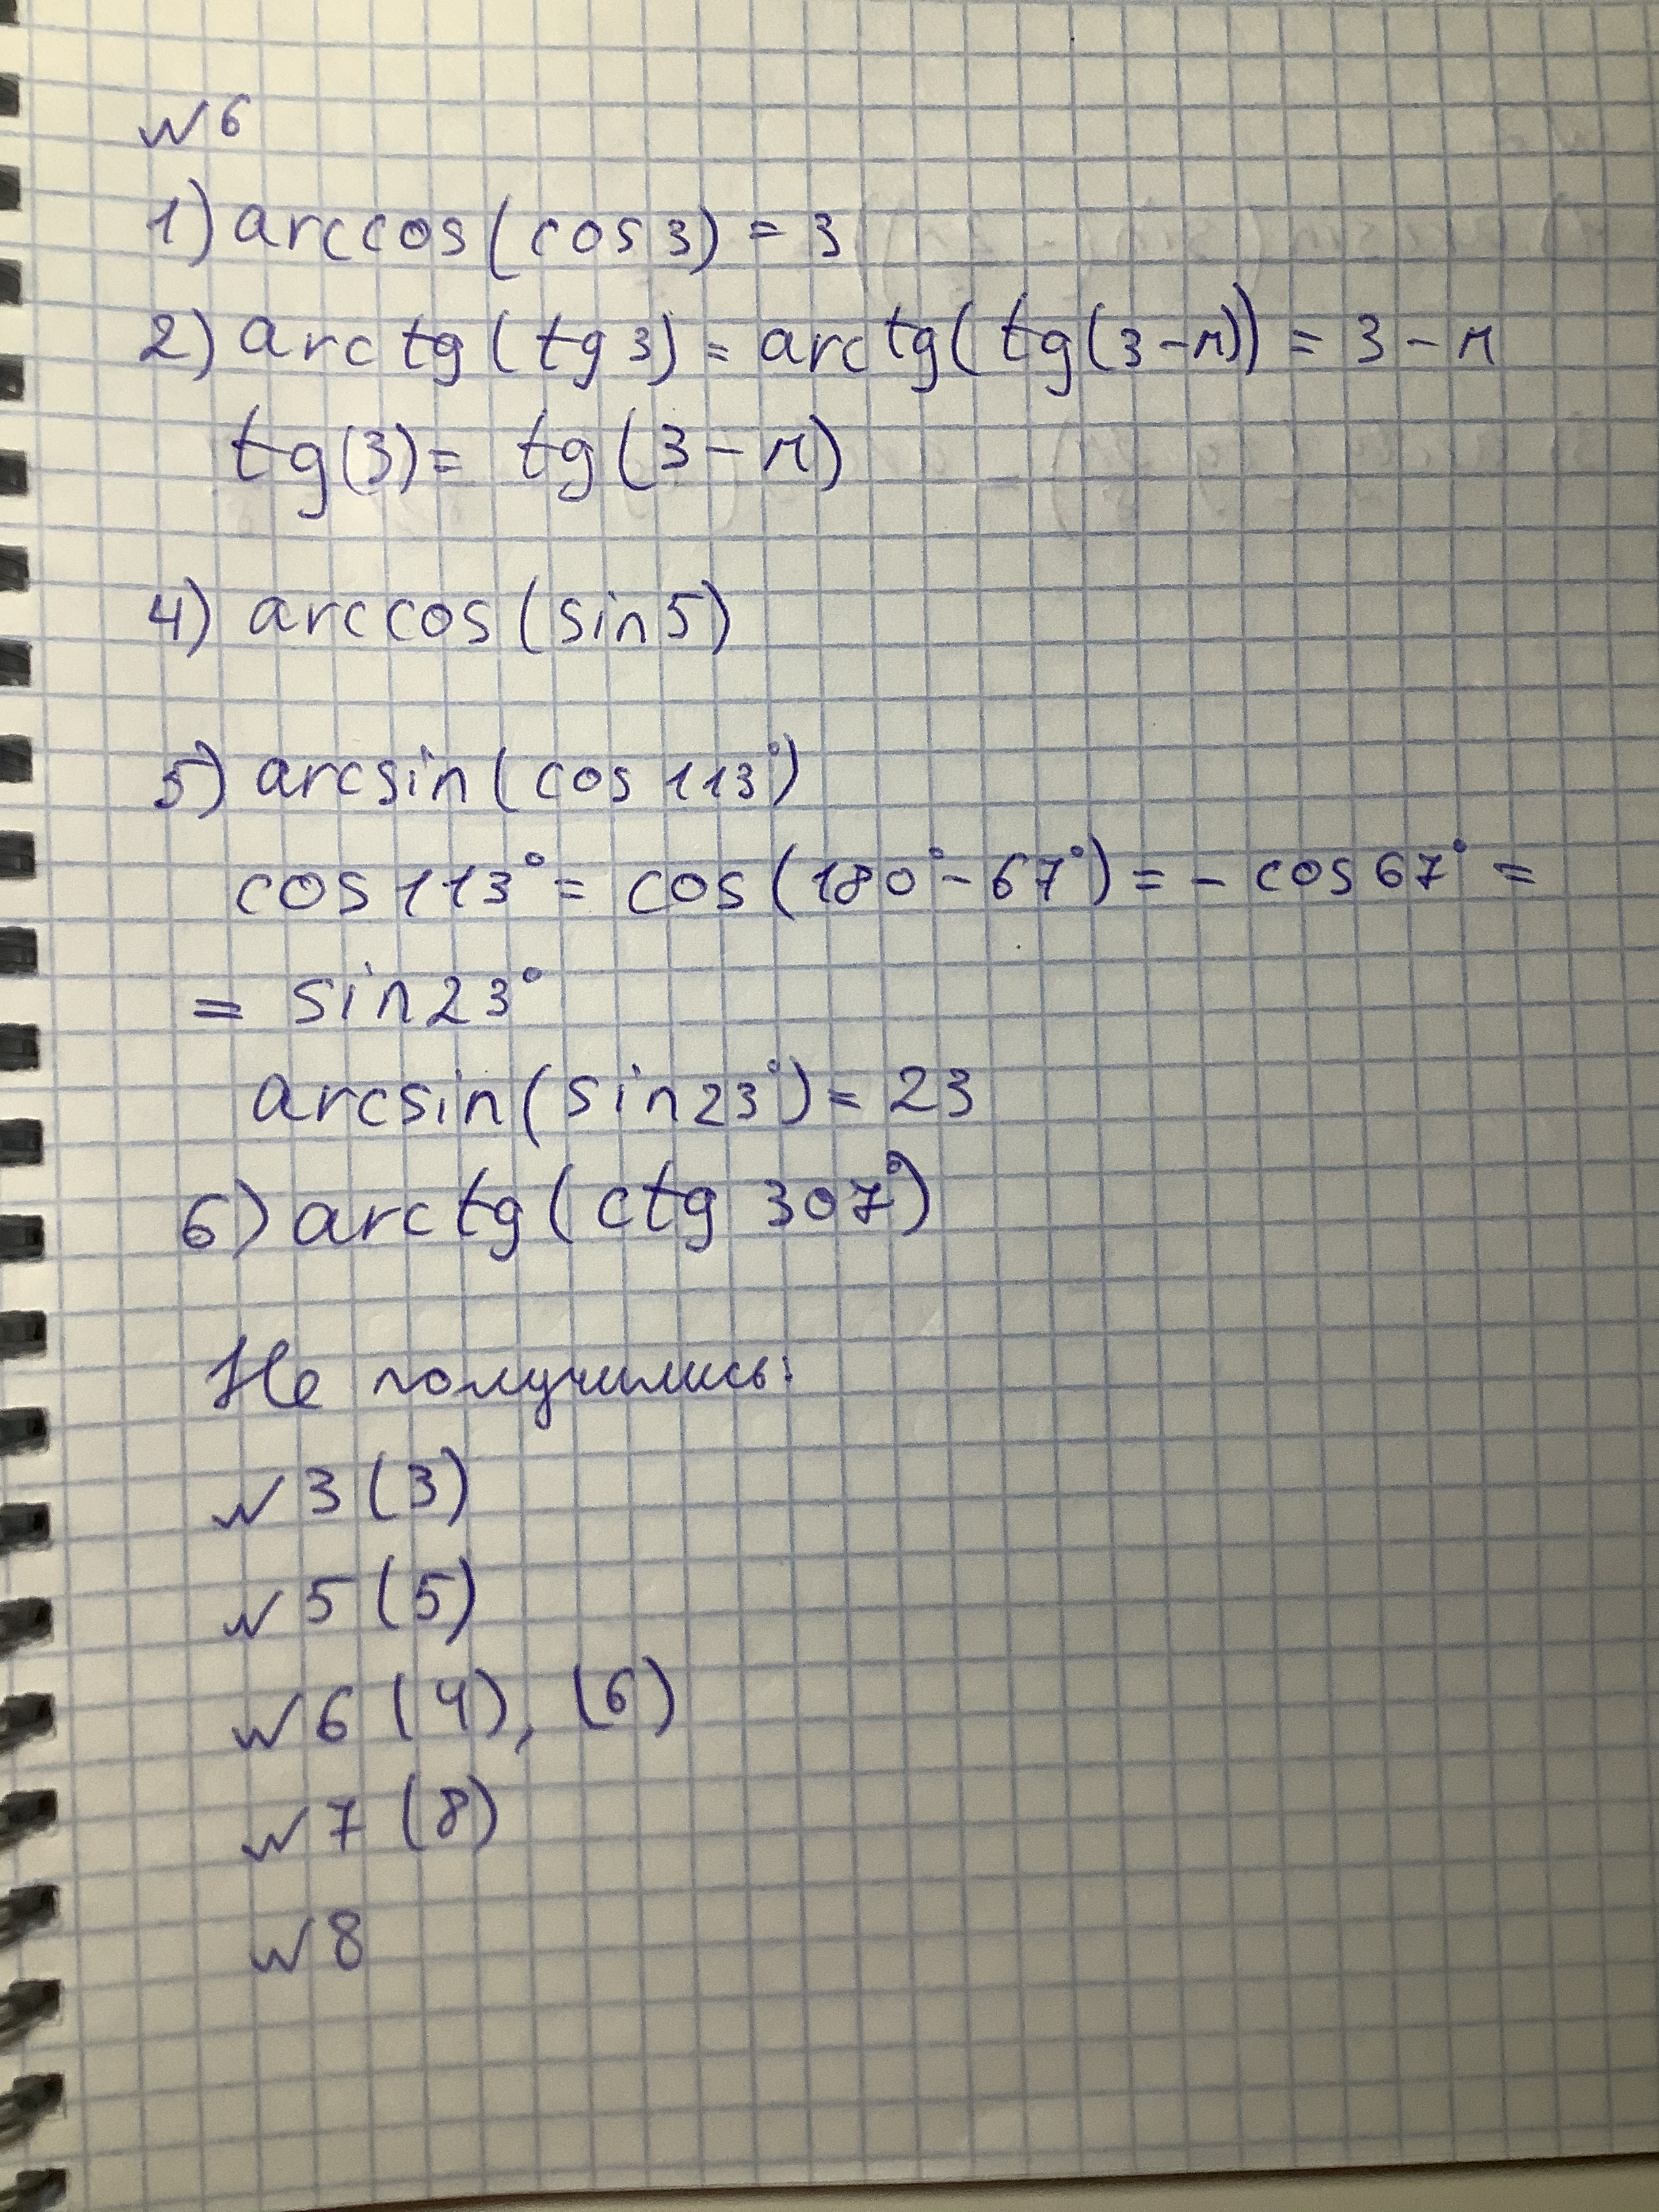 №6
1) arccos(cos 3) = 3
2) arctg(tg 3) = arctg(tg(3-π)) = 3-π
tg(3) = tg(3-π)
4) arccos(sin 5)
5) arcsin(cos 113°)
cos 113° = cos(180°-67°) = - cos 67° =
= sin 23°
arcsin(sin 23°) = 23
6) arctg(ctg 307°)
Не получились:
№3 (3)
№5 (5)
№6 (4), (6)
№7 (8)
№8